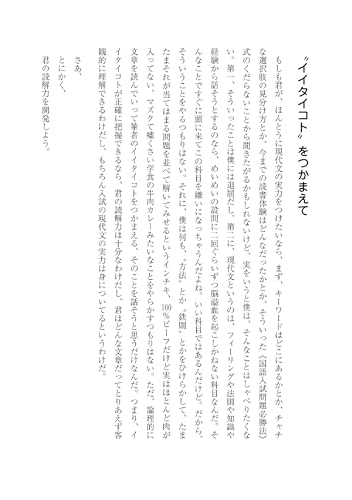 〝イイタイコト〟をつかまえて
もしも君が、ほんとうに現代文の実力をつけたいなら、まず、キーワードはどこにあるかとか、チャチ
な選択肢の見分け方とか、今までの読書体験はどんなだったかとか、そういった《国語入試問題必勝法》
式のくだらないことから聞きたがるかもしれないけど、実をいうと僕は、そんなことはしゃべりたくな
い。第一、そういったことは僕には退屈だし、第二に、現代文というのは、フィーリングや法則や知識や
経験から話そうとするのなら、めいめいの設問に二回ぐらいずつ脳溢血を起こしかねない科目なんだ。そ
んなことですぐに頭に来てこの科目を嫌いになっちゃうんだよね。いい科目ではあるんだけど。だから、
そういうことをやるつもりはない。それに、僕は何も、〝方法〟とか〝鉄則〟とかをひけらかして、たま
たまそれが当てはまる問題を並べて解いてみせるというインチキ、100%ビーフだけど実はほとんど肉が
入ってない、マズクて嘘くさい学食の牛肉カレーみたいなことをやらかすつもりはない。ただ、論理的に
文章を読んでいって筆者のイイタイコトをつかまえる、そのことを話そうと思うだけなんだ。つまり、イ
イタイコトが正確に把握できるなら、君の読解力は十分なわけだし、君はどんな文章だってとりあえず客
観的に理解できるわけだし、もちろん入試の現代文の実力は身についてるというわけだ。
さあ、
とにかく、
君の読解力を開発しよう。